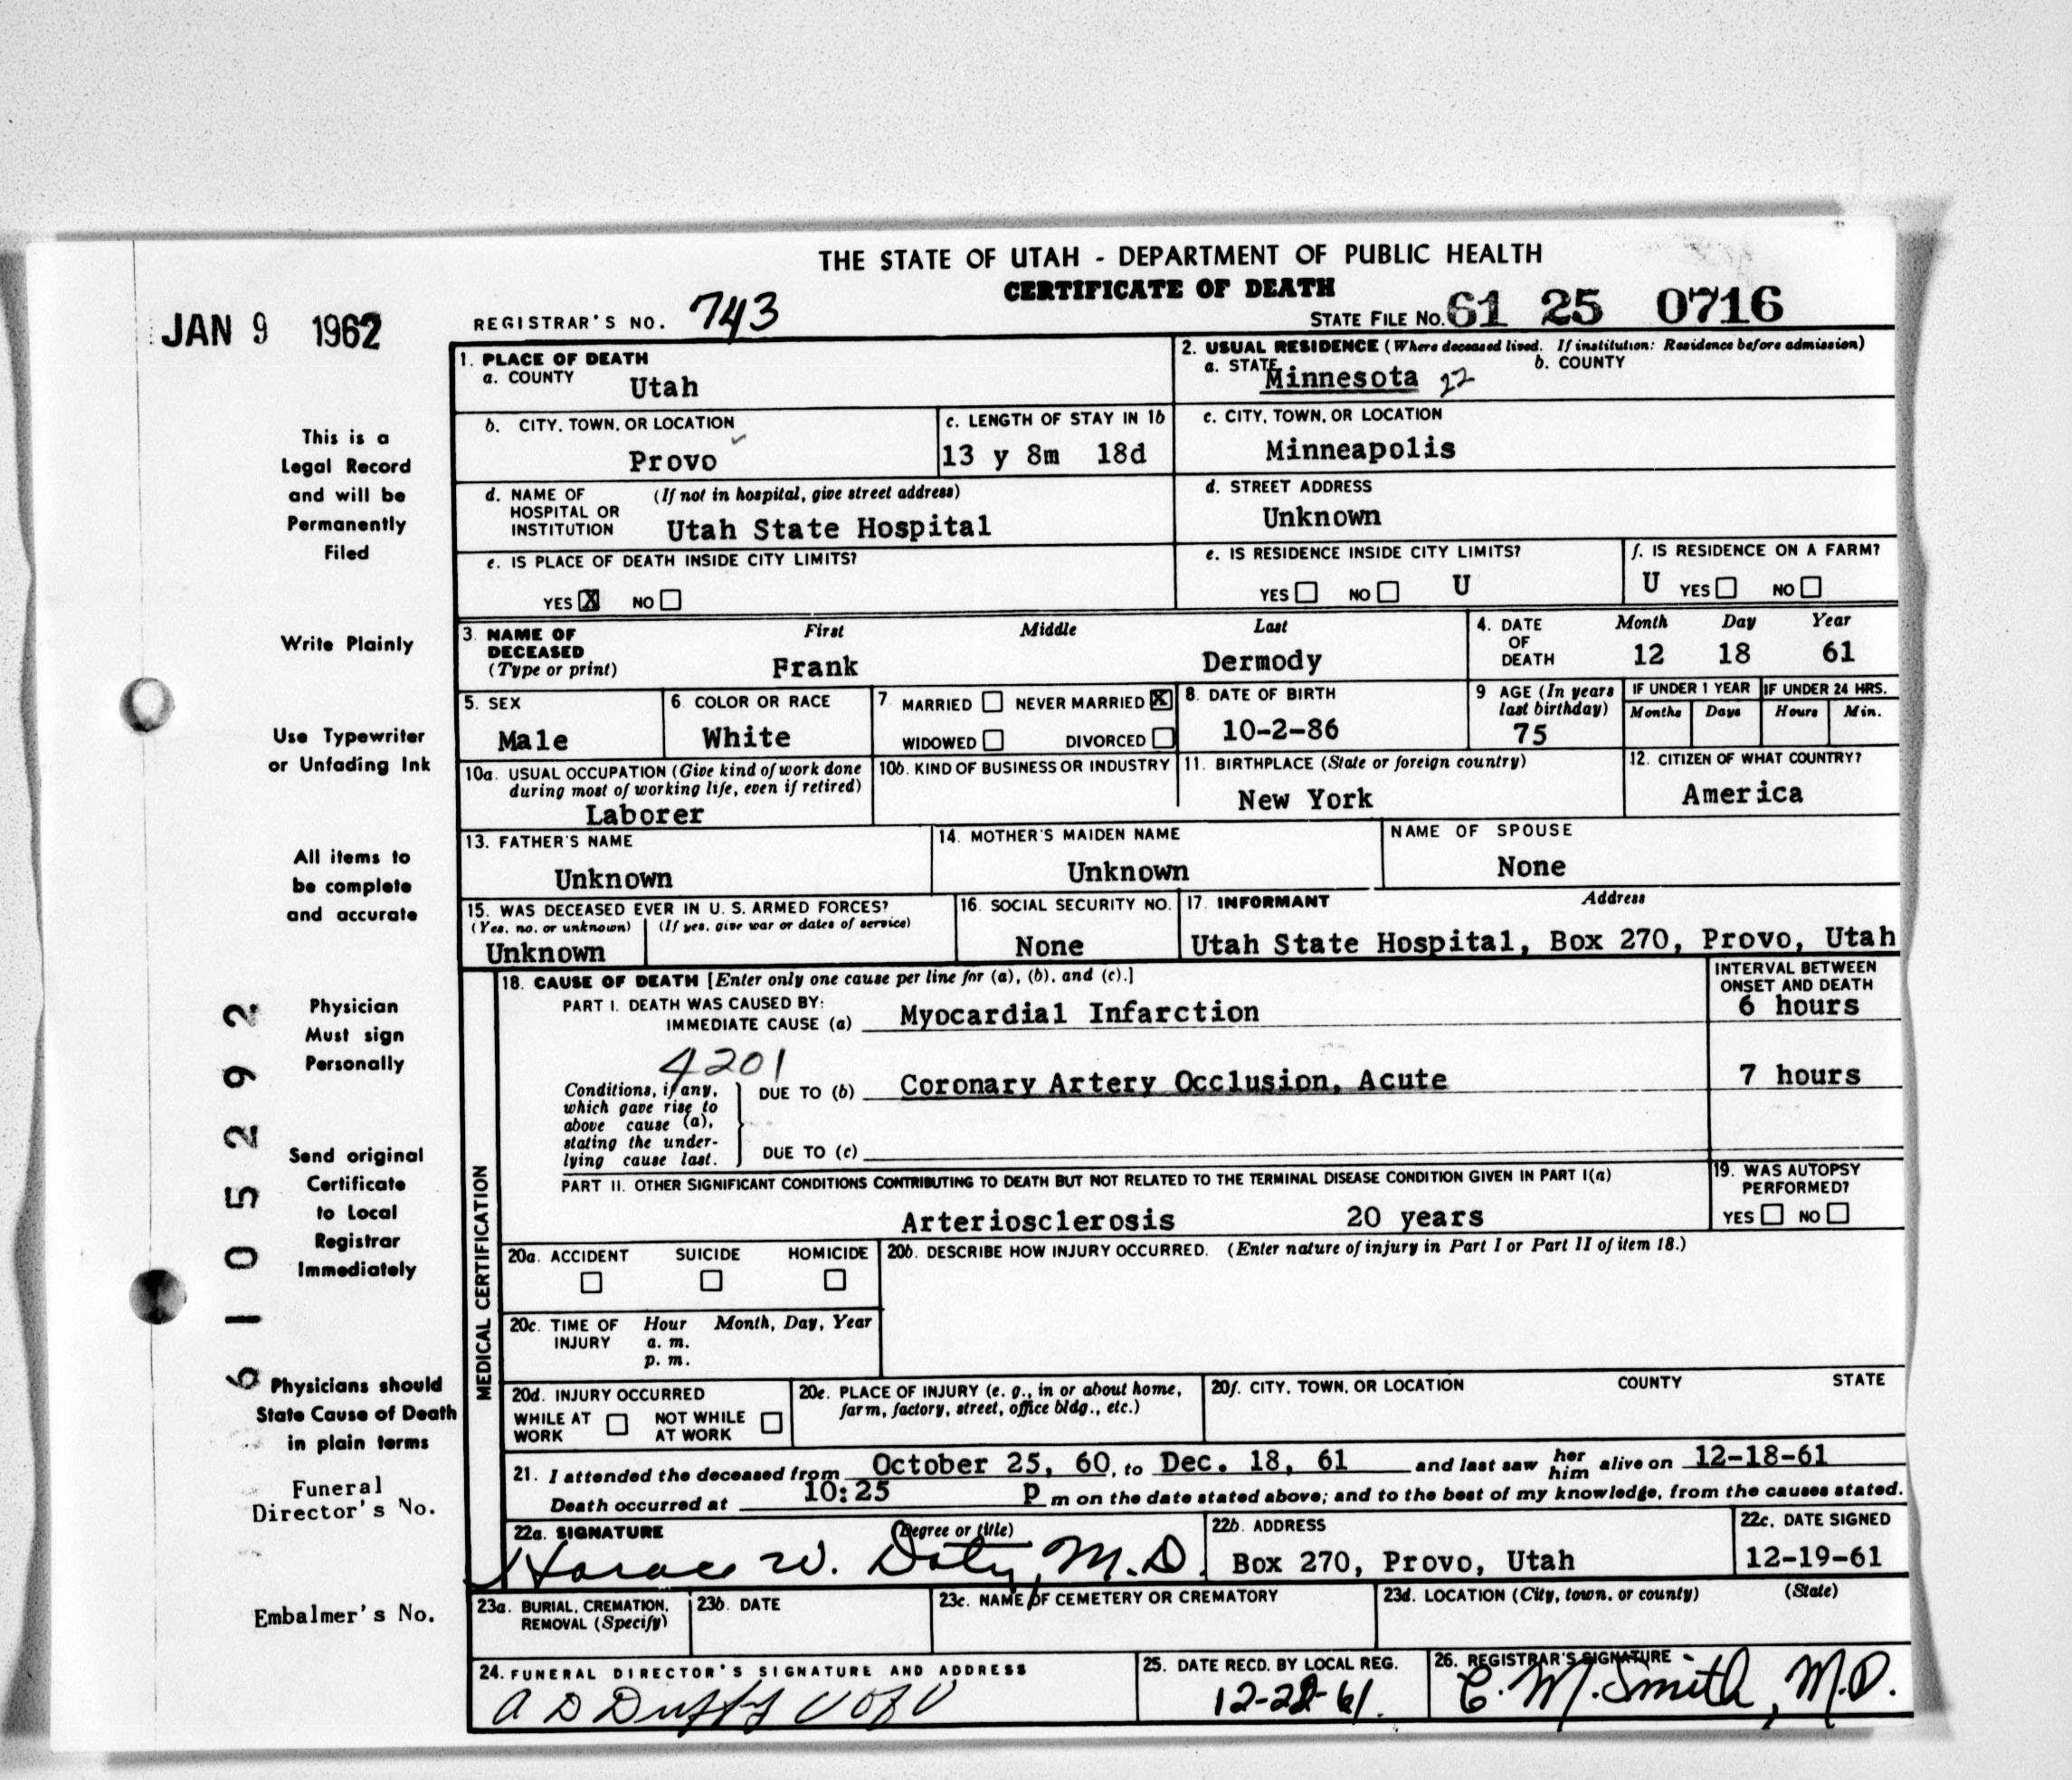 THE STATE OF UTAH - DEPARTMENT OF PUBLIC HEALTH
CERTIFICATE OF DEATH
JAN 9 1962
REGISTRAR'S NO. 743
STATE FILE NO. 61 25 0716
1. PLACE OF DEATH
a. COUNTY Utah
2. USUAL RESIDENCE (Where deceased lived. If institution: Residence before admission)
a. STATE Minnesota 22 b. COUNTY
b. CITY, TOWN, OR LOCATION
Provo
c. LENGTH OF STAY IN 1b
13 y 8m 18d
c. CITY, TOWN, OR LOCATION
Minneapolis
d. NAME OF HOSPITAL OR INSTITUTION (If not in hospital, give street address)
Utah State Hospital
d. STREET ADDRESS
Unknown
e. IS PLACE OF DEATH INSIDE CITY LIMITS?
YES X NO
e. IS RESIDENCE INSIDE CITY LIMITS?
YES NO U
f. IS RESIDENCE ON A FARM?
U YES NO
3. NAME OF DECEASED (Type or print)
First Middle Last
Frank Dermody
4. DATE OF DEATH
Month Day Year
12 18 61
5. SEX
Male
6. COLOR OR RACE
White
7. MARRIED NEVER MARRIED X
WIDOWED DIVORCED
8. DATE OF BIRTH
10-2-86
9 AGE (In years last birthday)
75
IF UNDER 1 YEAR
Months Days
IF UNDER 24 HRS.
Hours Min.
10a. USUAL OCCUPATION (Give kind of work done during most of working life, even if retired)
Laborer
10b. KIND OF BUSINESS OR INDUSTRY
11. BIRTHPLACE (State or foreign country)
New York
12. CITIZEN OF WHAT COUNTRY?
America
13. FATHER'S NAME
Unknown
14. MOTHER'S MAIDEN NAME
Unknown
NAME OF SPOUSE
None
15. WAS DECEASED EVER IN U. S. ARMED FORCES?
(Yes, no, or unknown) (If yes, give war or dates of service)
Unknown
16. SOCIAL SECURITY NO.
None
17. INFORMANT Address
Utah State Hospital, Box 270, Provo, Utah
MEDICAL CERTIFICATION
18. CAUSE OF DEATH [Enter only one cause per line for (a), (b), and (c).]
INTERVAL BETWEEN ONSET AND DEATH
PART I. DEATH WAS CAUSED BY:
IMMEDIATE CAUSE (a) Myocardial Infarction 6 hours
4201
Conditions, if any, which gave rise to above cause (a), stating the underlying cause last.
DUE TO (b) Coronary Artery Occlusion, Acute 7 hours
DUE TO (c)
PART II. OTHER SIGNIFICANT CONDITIONS CONTRIBUTING TO DEATH BUT NOT RELATED TO THE TERMINAL DISEASE CONDITION GIVEN IN PART I(a)
Arteriosclerosis 20 years
19. WAS AUTOPSY PERFORMED?
YES NO
20a. ACCIDENT SUICIDE HOMICIDE
20b. DESCRIBE HOW INJURY OCCURRED. (Enter nature of injury in Part I or Part II of item 18.)
20c. TIME OF INJURY Hour Month, Day, Year
a. m.
p. m.
20d. INJURY OCCURRED
WHILE AT WORK NOT WHILE AT WORK
20e. PLACE OF INJURY (e. g., in or about home, farm, factory, street, office bldg., etc.)
20f. CITY, TOWN, OR LOCATION COUNTY STATE
21. I attended the deceased from October 25, 60, to Dec. 18, 61 and last saw her him alive on 12-18-61
Death occurred at 10:25 P m on the date stated above; and to the best of my knowledge, from the causes stated.
22a. SIGNATURE (Degree or title)
Horace W. Doty, M.D.
22b. ADDRESS
Box 270, Provo, Utah
22c. DATE SIGNED
12-19-61
23a. BURIAL, CREMATION, REMOVAL (Specify)
23b. DATE
23c. NAME OF CEMETERY OR CREMATORY
23d. LOCATION (City, town, or county) (State)
24. FUNERAL DIRECTOR'S SIGNATURE AND ADDRESS
A D Duffy U of U
25. DATE RECD. BY LOCAL REG.
26. REGISTRAR'S SIGNATURE
C. M. Smith, M.D.
This is a
Legal Record
and will be
Permanently
Filed
Write Plainly
Use Typewriter
or Unfading Ink
All items to
be complete
and accurate
Physician
Must sign
Personally
Send original
Certificate
to Local
Registrar
Immediately
Physicians should
State Cause of Death
in plain terms
Funeral
Director's No.
Embalmer's No.
6105292